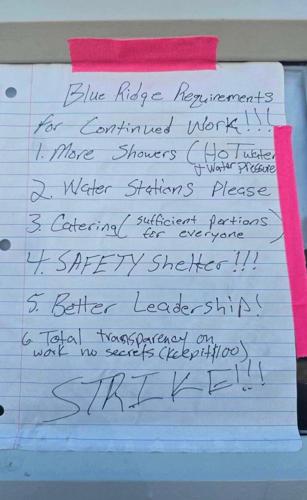 Blue Ridge Requirements
for Continued Work!!!
1. More Showers (HOT water
+ water Pressure
2. Water Stations Please
3. Catering (sufficient portions
for everyone)
4. SAFETY Shelter!!!
5. Better Leadership!
6. Total transparency on
work no secrets (Keep it $100)
STRIKE!!!